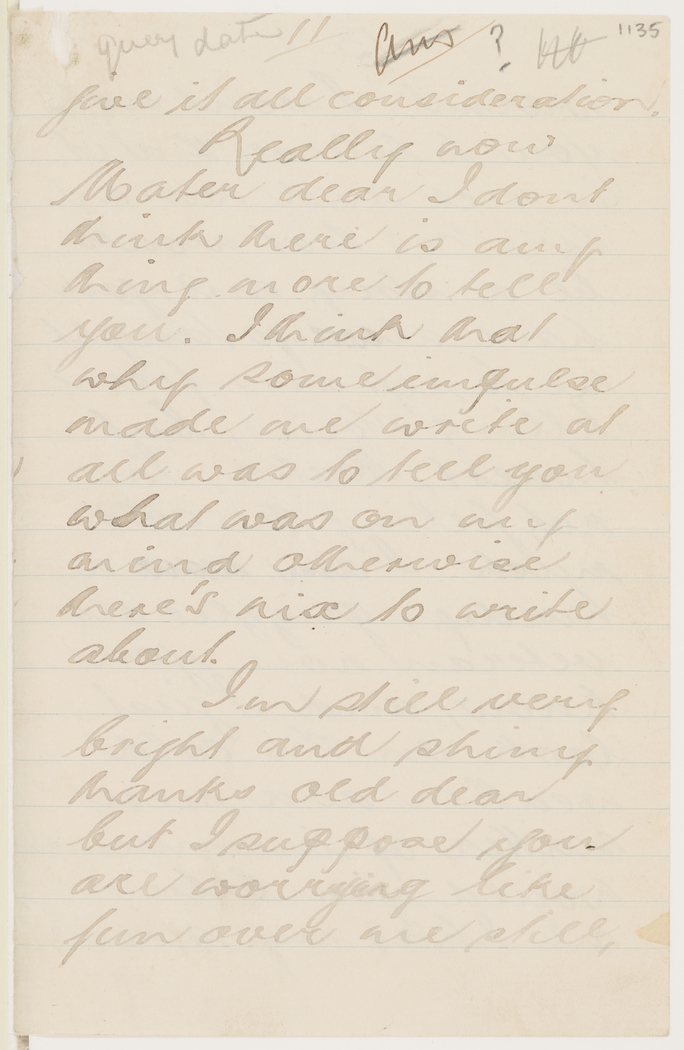 query date !!
Ans ?
1135
give it all consideration.
Really now
Mater dear I dont
think there is any
thing more to tell
you. I think that
why some impulse
made me write at
all was to tell you
what was on my
mind otherwise
there's nix to write
about.
I'm still very
bright and shiny
thanks old dear
but I suppose you
are worrying like
fun over me still,